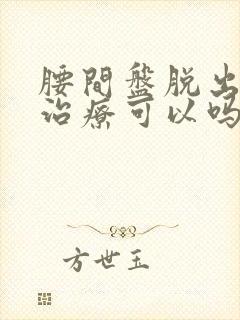 腰間盤脱出
治療可以吗
方世玉